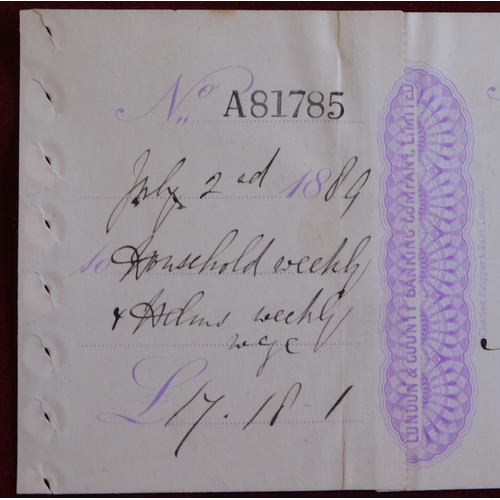 No A81785
July 2nd 1889
to Household weekly
& Helms weekly
wage
£17.18-1
LONDON & COUNTY BANKING COMPANY, LIMITED